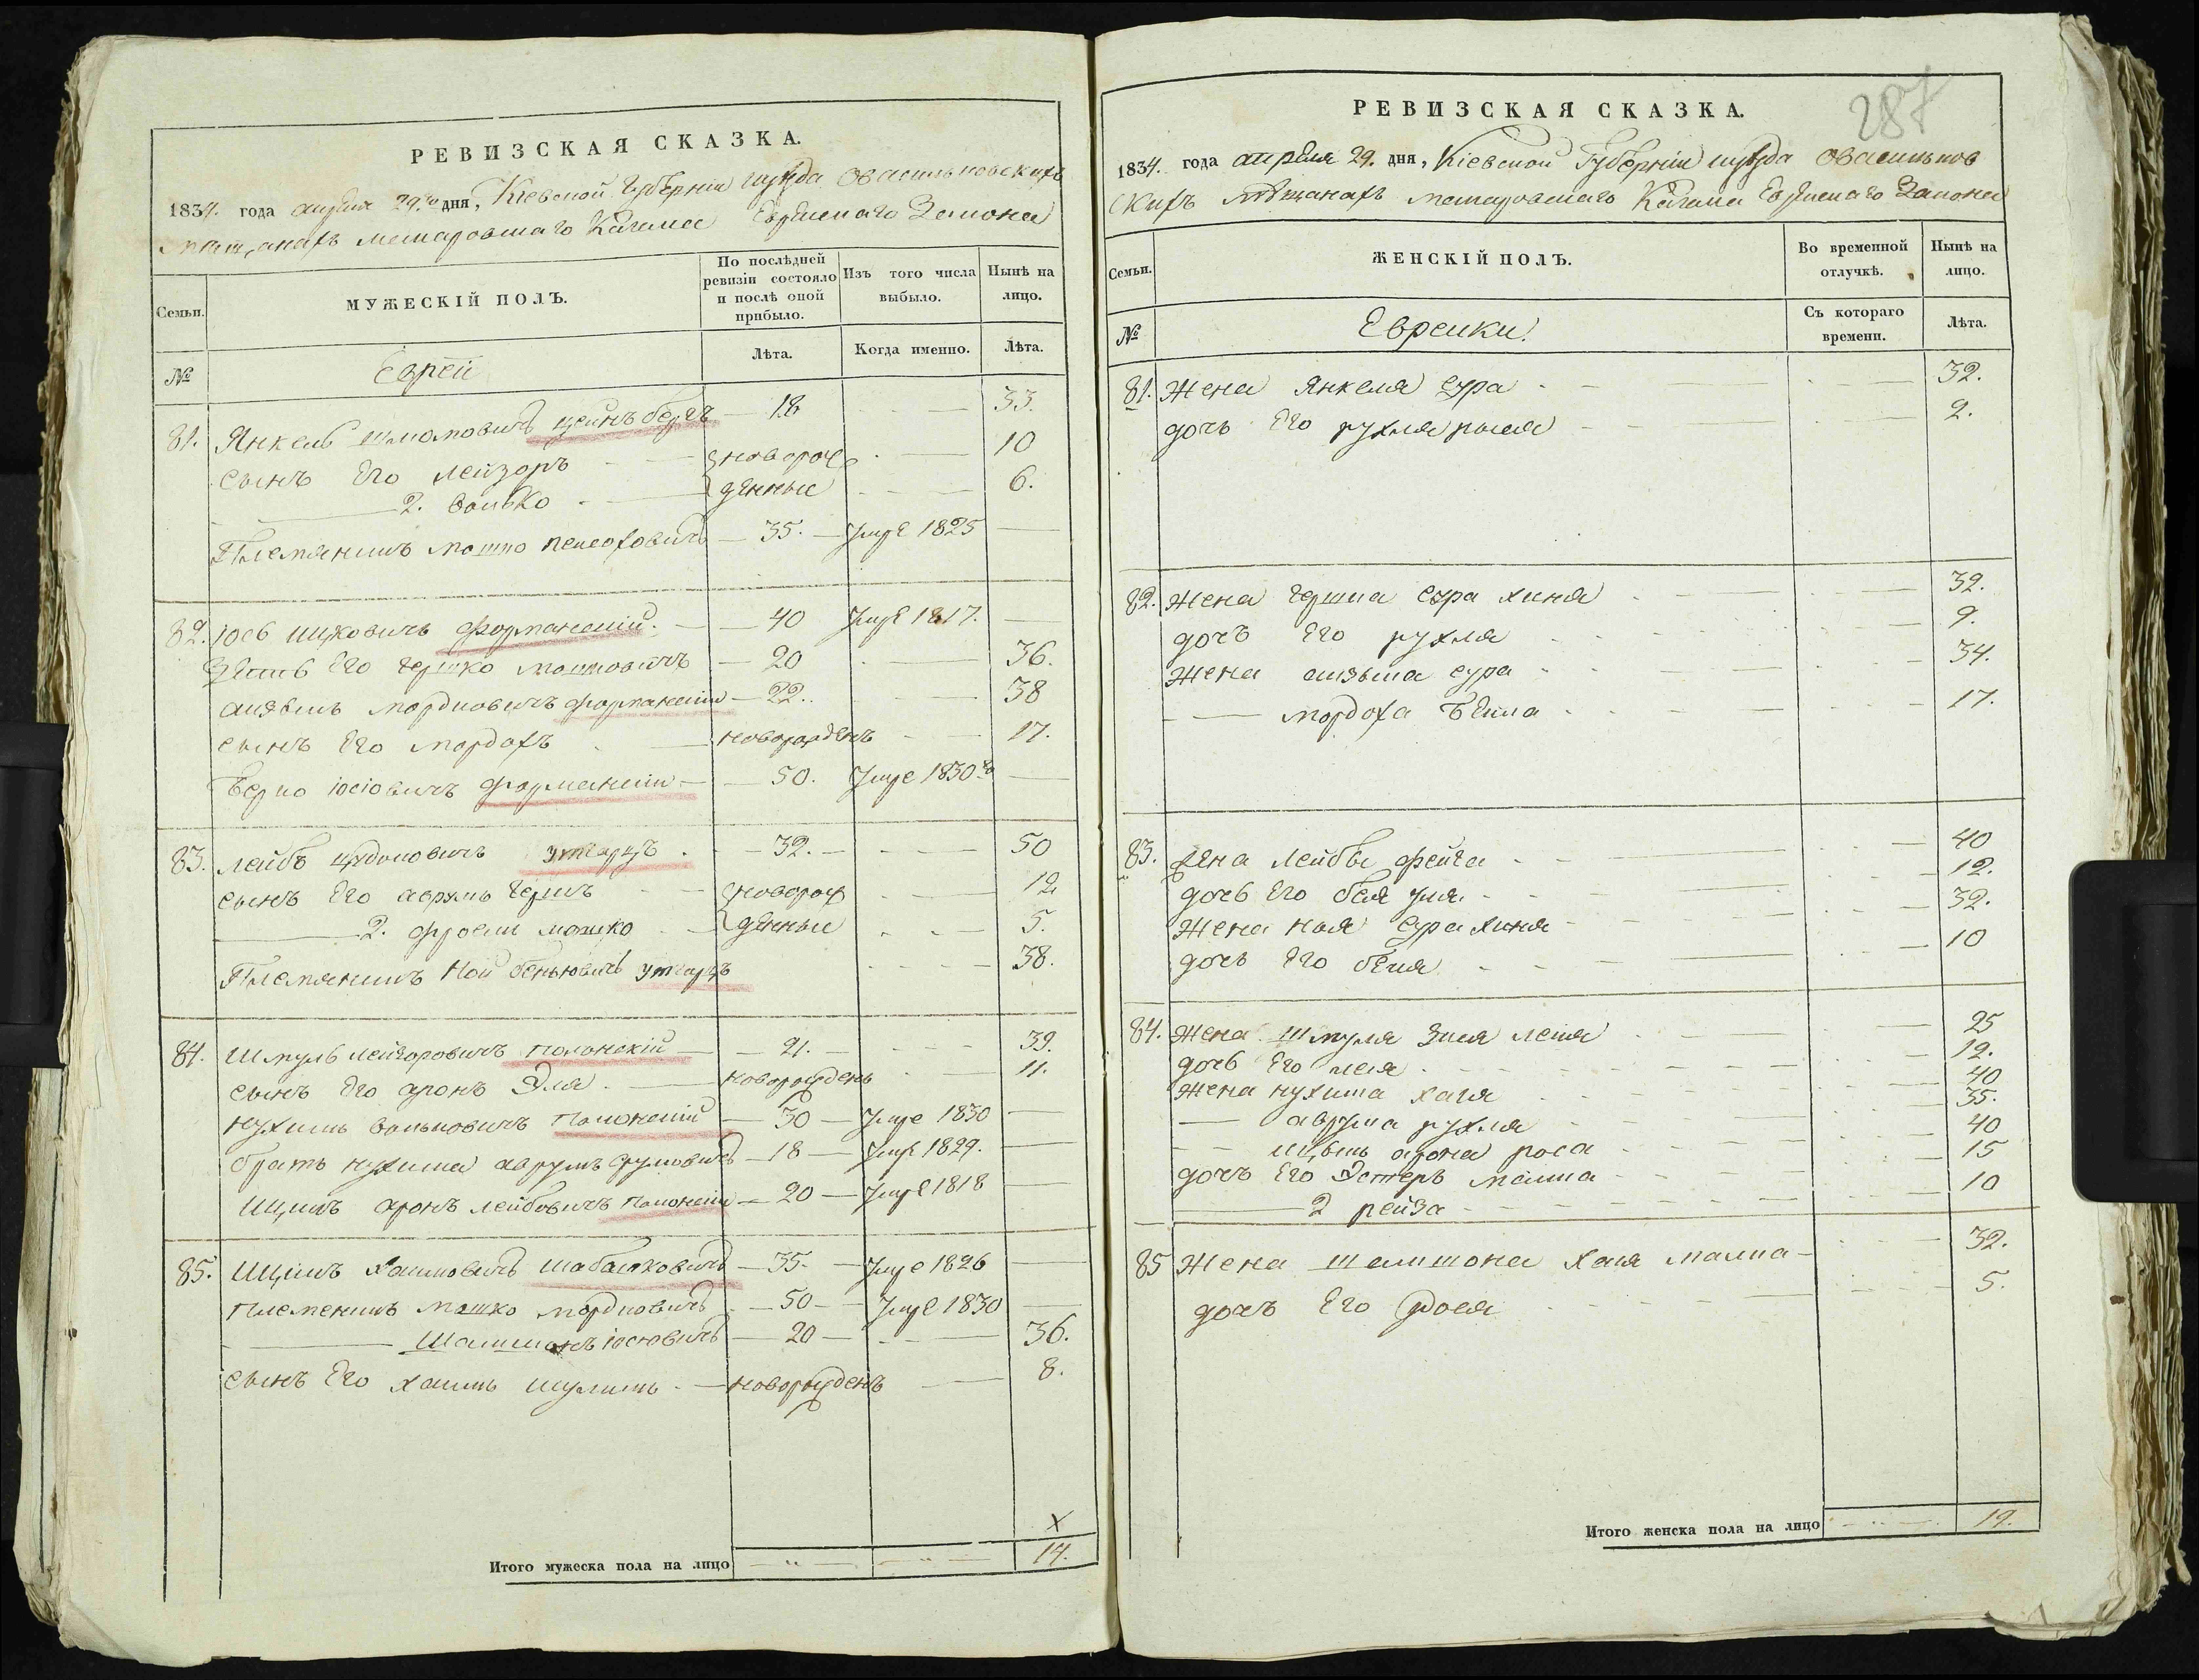 РЕВИЗСКАЯ СКАЗКА.
1834. года апреля 29го дня, Кіевской Губерніи уезда о Васильковскихъ
мещанахъ Кагала Еврейскаго Закона
Семьи.
МУЖЕСКІЙ ПОЛЪ.
По послѣдней ревизіи состояло и послѣ оной прибыло.
Изъ того числа выбыло.
Нынѣ на лицо.
№
Евреи
Лѣта.
Когда именно.
Лѣта.
81. Янкель Шмолювичъ 18 33.
Сынъ Его Лейзоръ новорож 10
2. Волько денные 6.
Племянникъ Мошко 35. Умре 1825
82. Іось Ицковичъ 40 Умре 1817.
Зять Его Гершко Мошковичъ 20 36.
Мордковичъ 22. 38
Сынъ Его Мордохъ новорожденъ 17.
Берко Іосіовичъ 50. Умре 1830го
83. Лейбъ 32. 50
Сынъ Его Аврумъ Гершъ новорож 12
2. Фроим Мошко денные 5.
Племянникъ Ной Беньювичъ 38.
84. Шмуль Лейзоровичъ Полонскій 21. 39.
Сынъ Его Аронъ Эля новорожденъ 11.
Нухимъ Вольковичъ Полонскій 30 Умре 1830
Братъ Нухима Аврумъ Срумовичъ 18 Умре 1829.
Ицикъ Аронъ Лейбовичъ Полонскій 20 Умре 1818
85. Ицикъ Хаимовичъ 35. Умре 1826
Племеникъ Мошко Мордковичъ 50 Умре 1830
Шамшонъ Іосіовичъ 20 36.
Сынъ Его Хаимъ Шулимъ новорожденъ 8.
X
Итого мужеска пола на лицо 14.
287
РЕВИЗСКАЯ СКАЗКА.
1834. года апреля 29. дня, Кіевской Губерніи уезда о Васильков
скихъ мещанахъ Кагала Еврейскаго Закона
Семьи.
ЖЕНСКІЙ ПОЛЪ.
Во временной отлучкѣ.
Нынѣ на лицо.
№
Евреики
Съ котораго времени.
Лѣта.
81. Жена Янкеля Сура 32.
дочь Его Рухля 2.
82. Жена Гершка Сура Хиня 32.
дочь Его Рухля 9.
Жена Сура 34.
Мордоха Бейла 17.
83. Жена Лейбы Фейга 40
дочь Его Бейя 12.
Жена Ноя Сура Хиня 32.
дочь Его 10
84. Жена Шмуля 25
дочь Его Лея 12.
Жена Нухима Хая 40
Аврума Рухля 35.
Арона Роса 40
дочь Его Эстеръ 15
2 Рейза 10
85 Жена Шамшона Хая Малка 32.
дочь Его 5.
Итого женска пола на лицо 19.